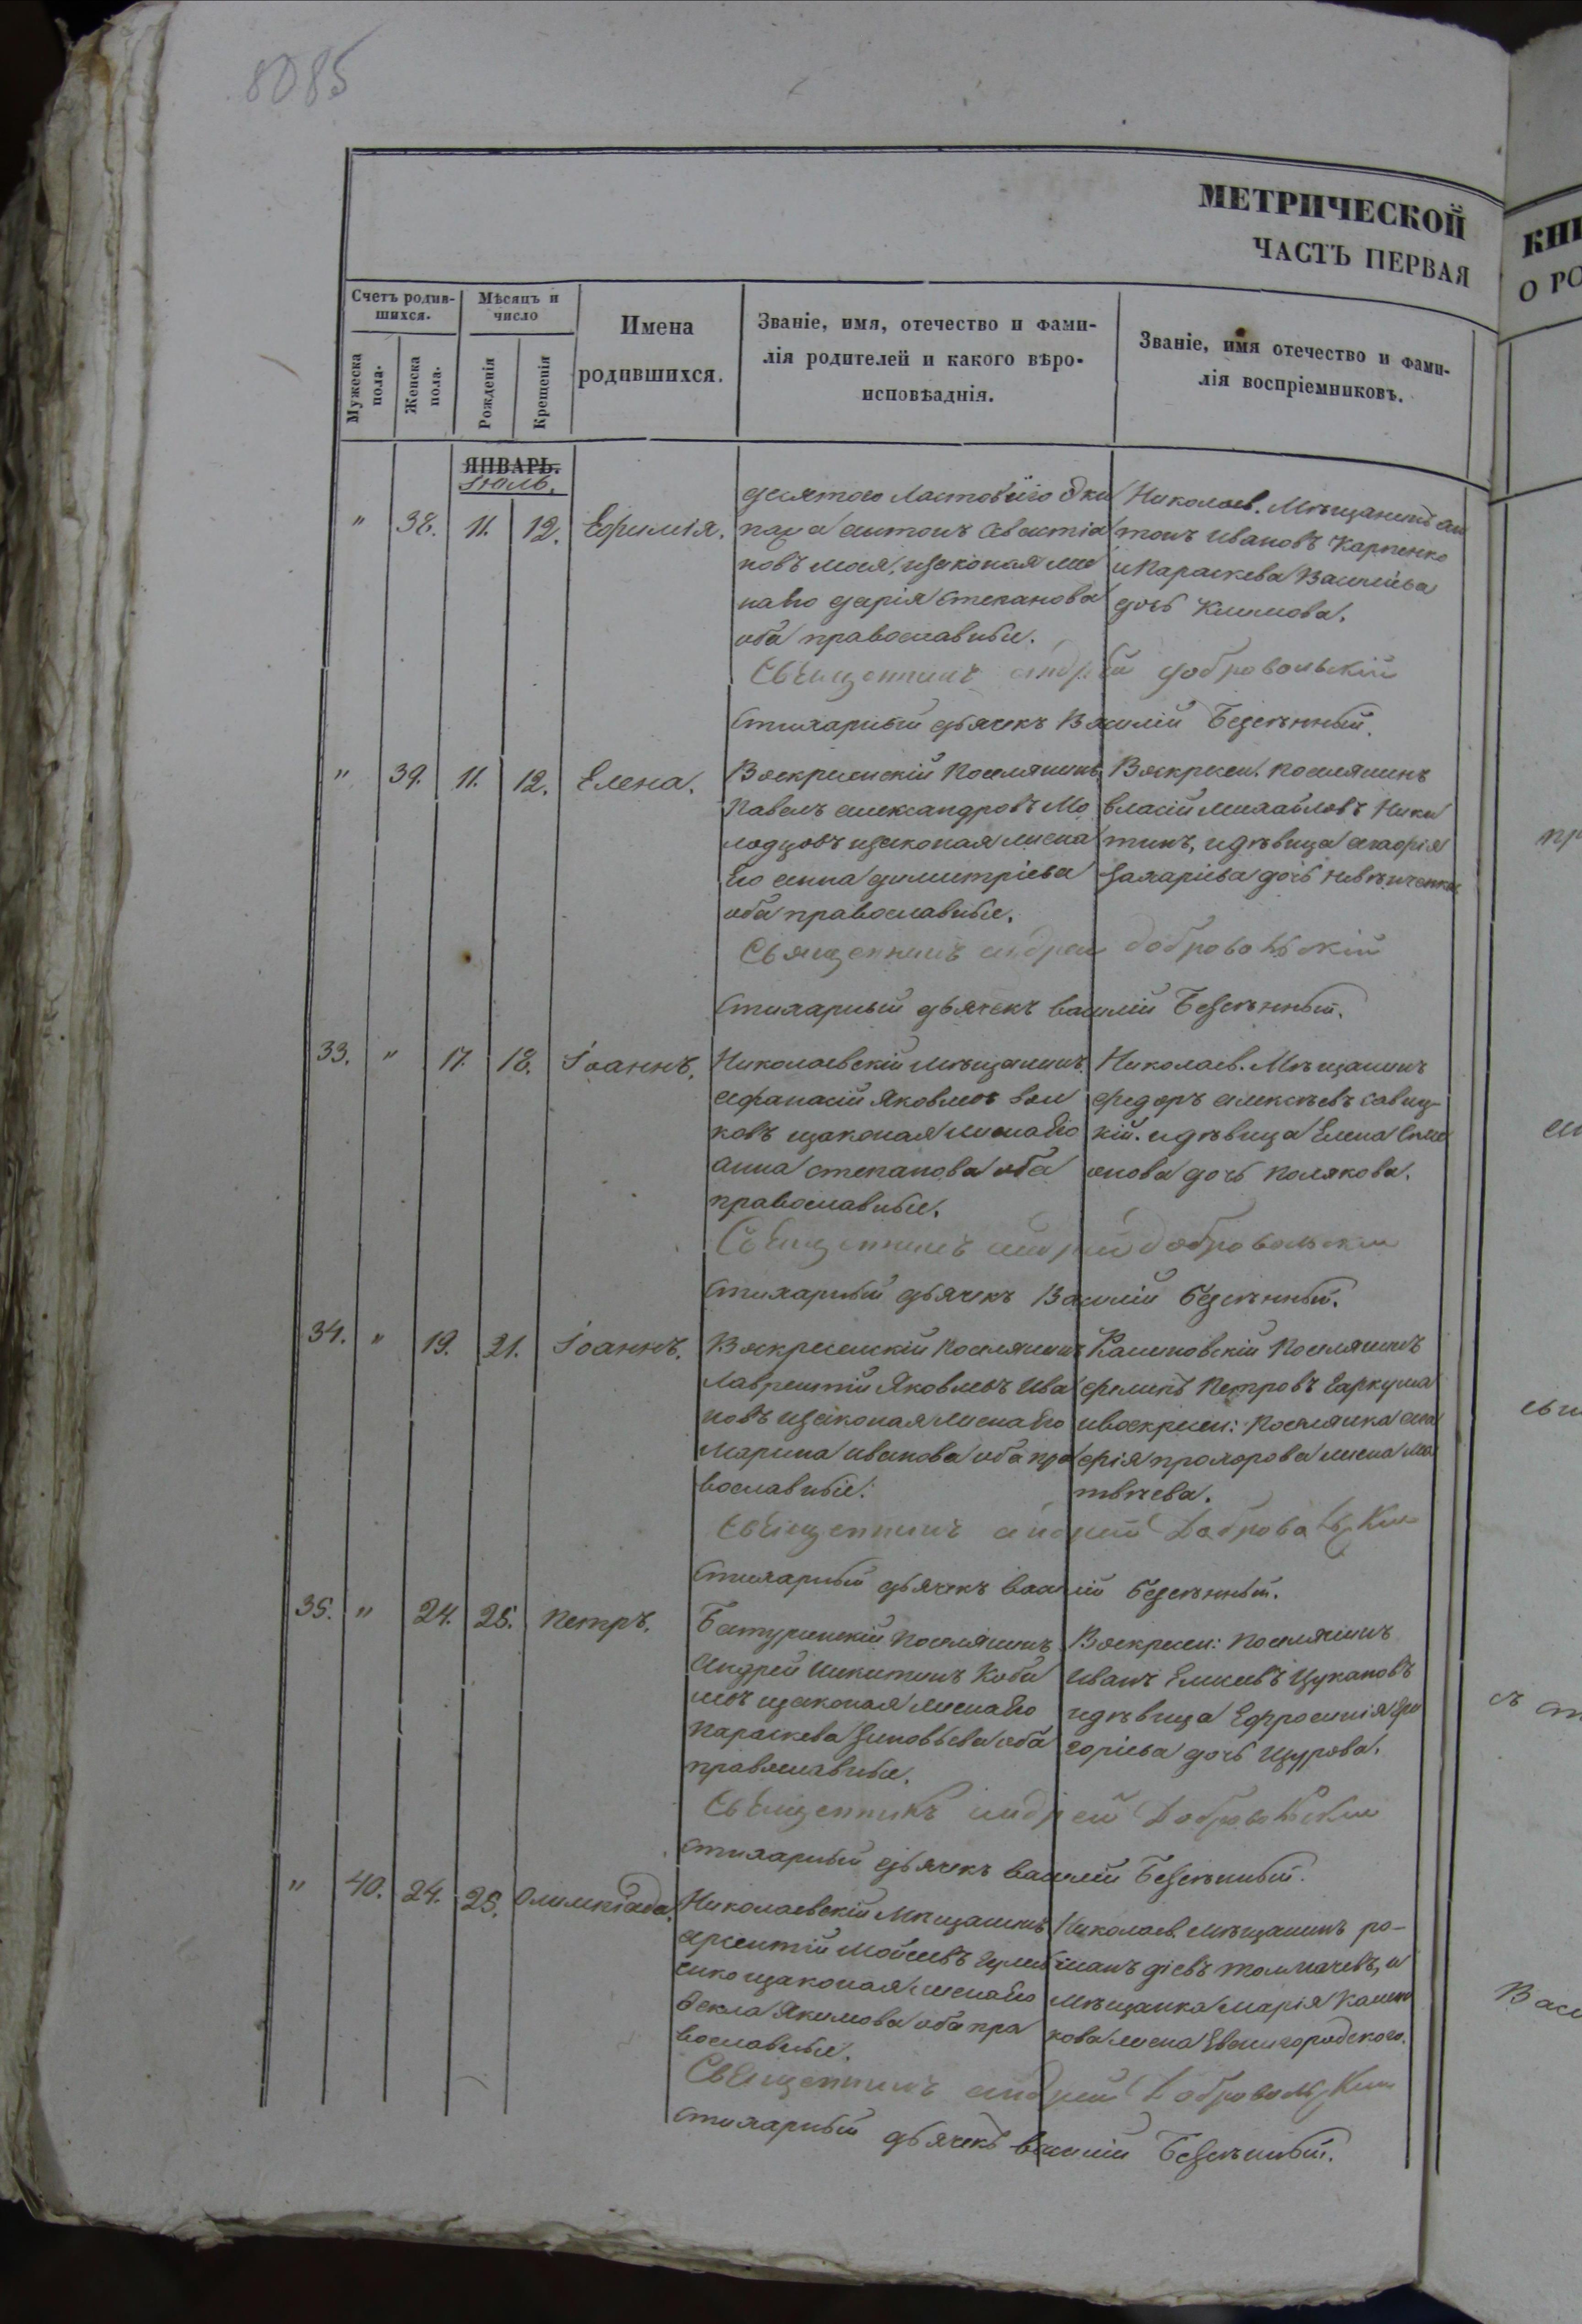 8085
МЕТРИЧЕСКОЙ
ЧАСТЬ ПЕРВАЯ
КНИ
О РО
Счетъ родив-
шихся.
Мѣсяцъ и
число
Имена
родившихся.
Званіе, имя, отечество и фами-
лія родителей и какого вѣро-
исповѣаднія.
Званіе, имя отечество и фами-
лія воспріемниковъ.
Мужеска
пола.
Женска
пола.
Рожденія
Крещенія
ЯНВАРЬ.
Іюль.
" 38. 11. 12. Ефимія.
десятого Ластовѣго Эки
пажа Антонъ Севастіа
новъ
законая
на Его Дарія Степанова
оба православные.
Николаев. Мѣщанинъ Ан
тонъ Ивановъ Карпенко
и Параскева Васильева
дочь Климова.
Священникъ Андрей Добровольскій
Стихарный дьячекъ Василій Безсѣнный.
" 39. 11. 12. Елена.
Воскресенскій Поселянинъ
Павелъ Александровъ Мо
лодцовъ изаконая жена
Его Анна Димитріева
оба православные.
Воскресен. Поселянинъ
Власій Михайловъ Ники
тинъ, и дѣвица Агафія
Захаріева дочь
Священникъ Андрей Добровольскій
Стихарный дьячекъ Василій Безсѣнный.
33. " 17. 18. Іоаннъ.
Николаевскій Мѣщанинъ
Афанасій Яковлевъ Вол
ковъ изаконая жена Его
Анна Степанова оба
православные.
Николаев. Мѣщанинъ
Федоръ Алексѣевъ Савиц-
кій. и дѣвица Елена Симе
онова дочь Полякова.
Священникъ Андрей Добровольскій
Стихарный дьячекъ Василій Безсѣнный.
34. " 19. 21. Іоаннъ.
Воскресенскій Поселянинъ
Лаврентій Яковлевъ Ива
новъ изаконая жена Его
Марина Иванова оба пра
вославные.
Калиновскій Поселянинъ
Филипъ Петровъ Гаркуша
и Воскресен: Поселянка Ага
фія Прохорова жена Ма
твѣева.
Священникъ Андрей Добровольскій
Стихарный дьячекъ Василій Безсѣнный.
35. " 24. 25. Петръ.
Батуринскій Поселянинъ
Андрей Никитинъ Кобы
изаконая жена Его
Параскева Зиновьева оба
православные.
Воскресен: Поселянинъ
Иванъ Елисеевъ Цукановъ
и дѣвица Ефросинія Гри
горіева дочь Щурова.
Священникъ Андрей Добровольскій
Стихарный дьячекъ Василій Безсѣнный.
" 40. 24. 25. Олимпіада.
Николаевскій Мѣщанинъ
Арсентій Мойсеевъ
енко изаконая жена Его
Ѳекла Якимова оба пра
вославные.
Николаев. Мѣщанинъ Ро-
манъ Діевъ Толмачевъ, и
Мѣщанка Марія
кова жена Звенигородского.
Священникъ Андрей Добровольскій
Стихарный дьячекъ Василій Безсѣнный.